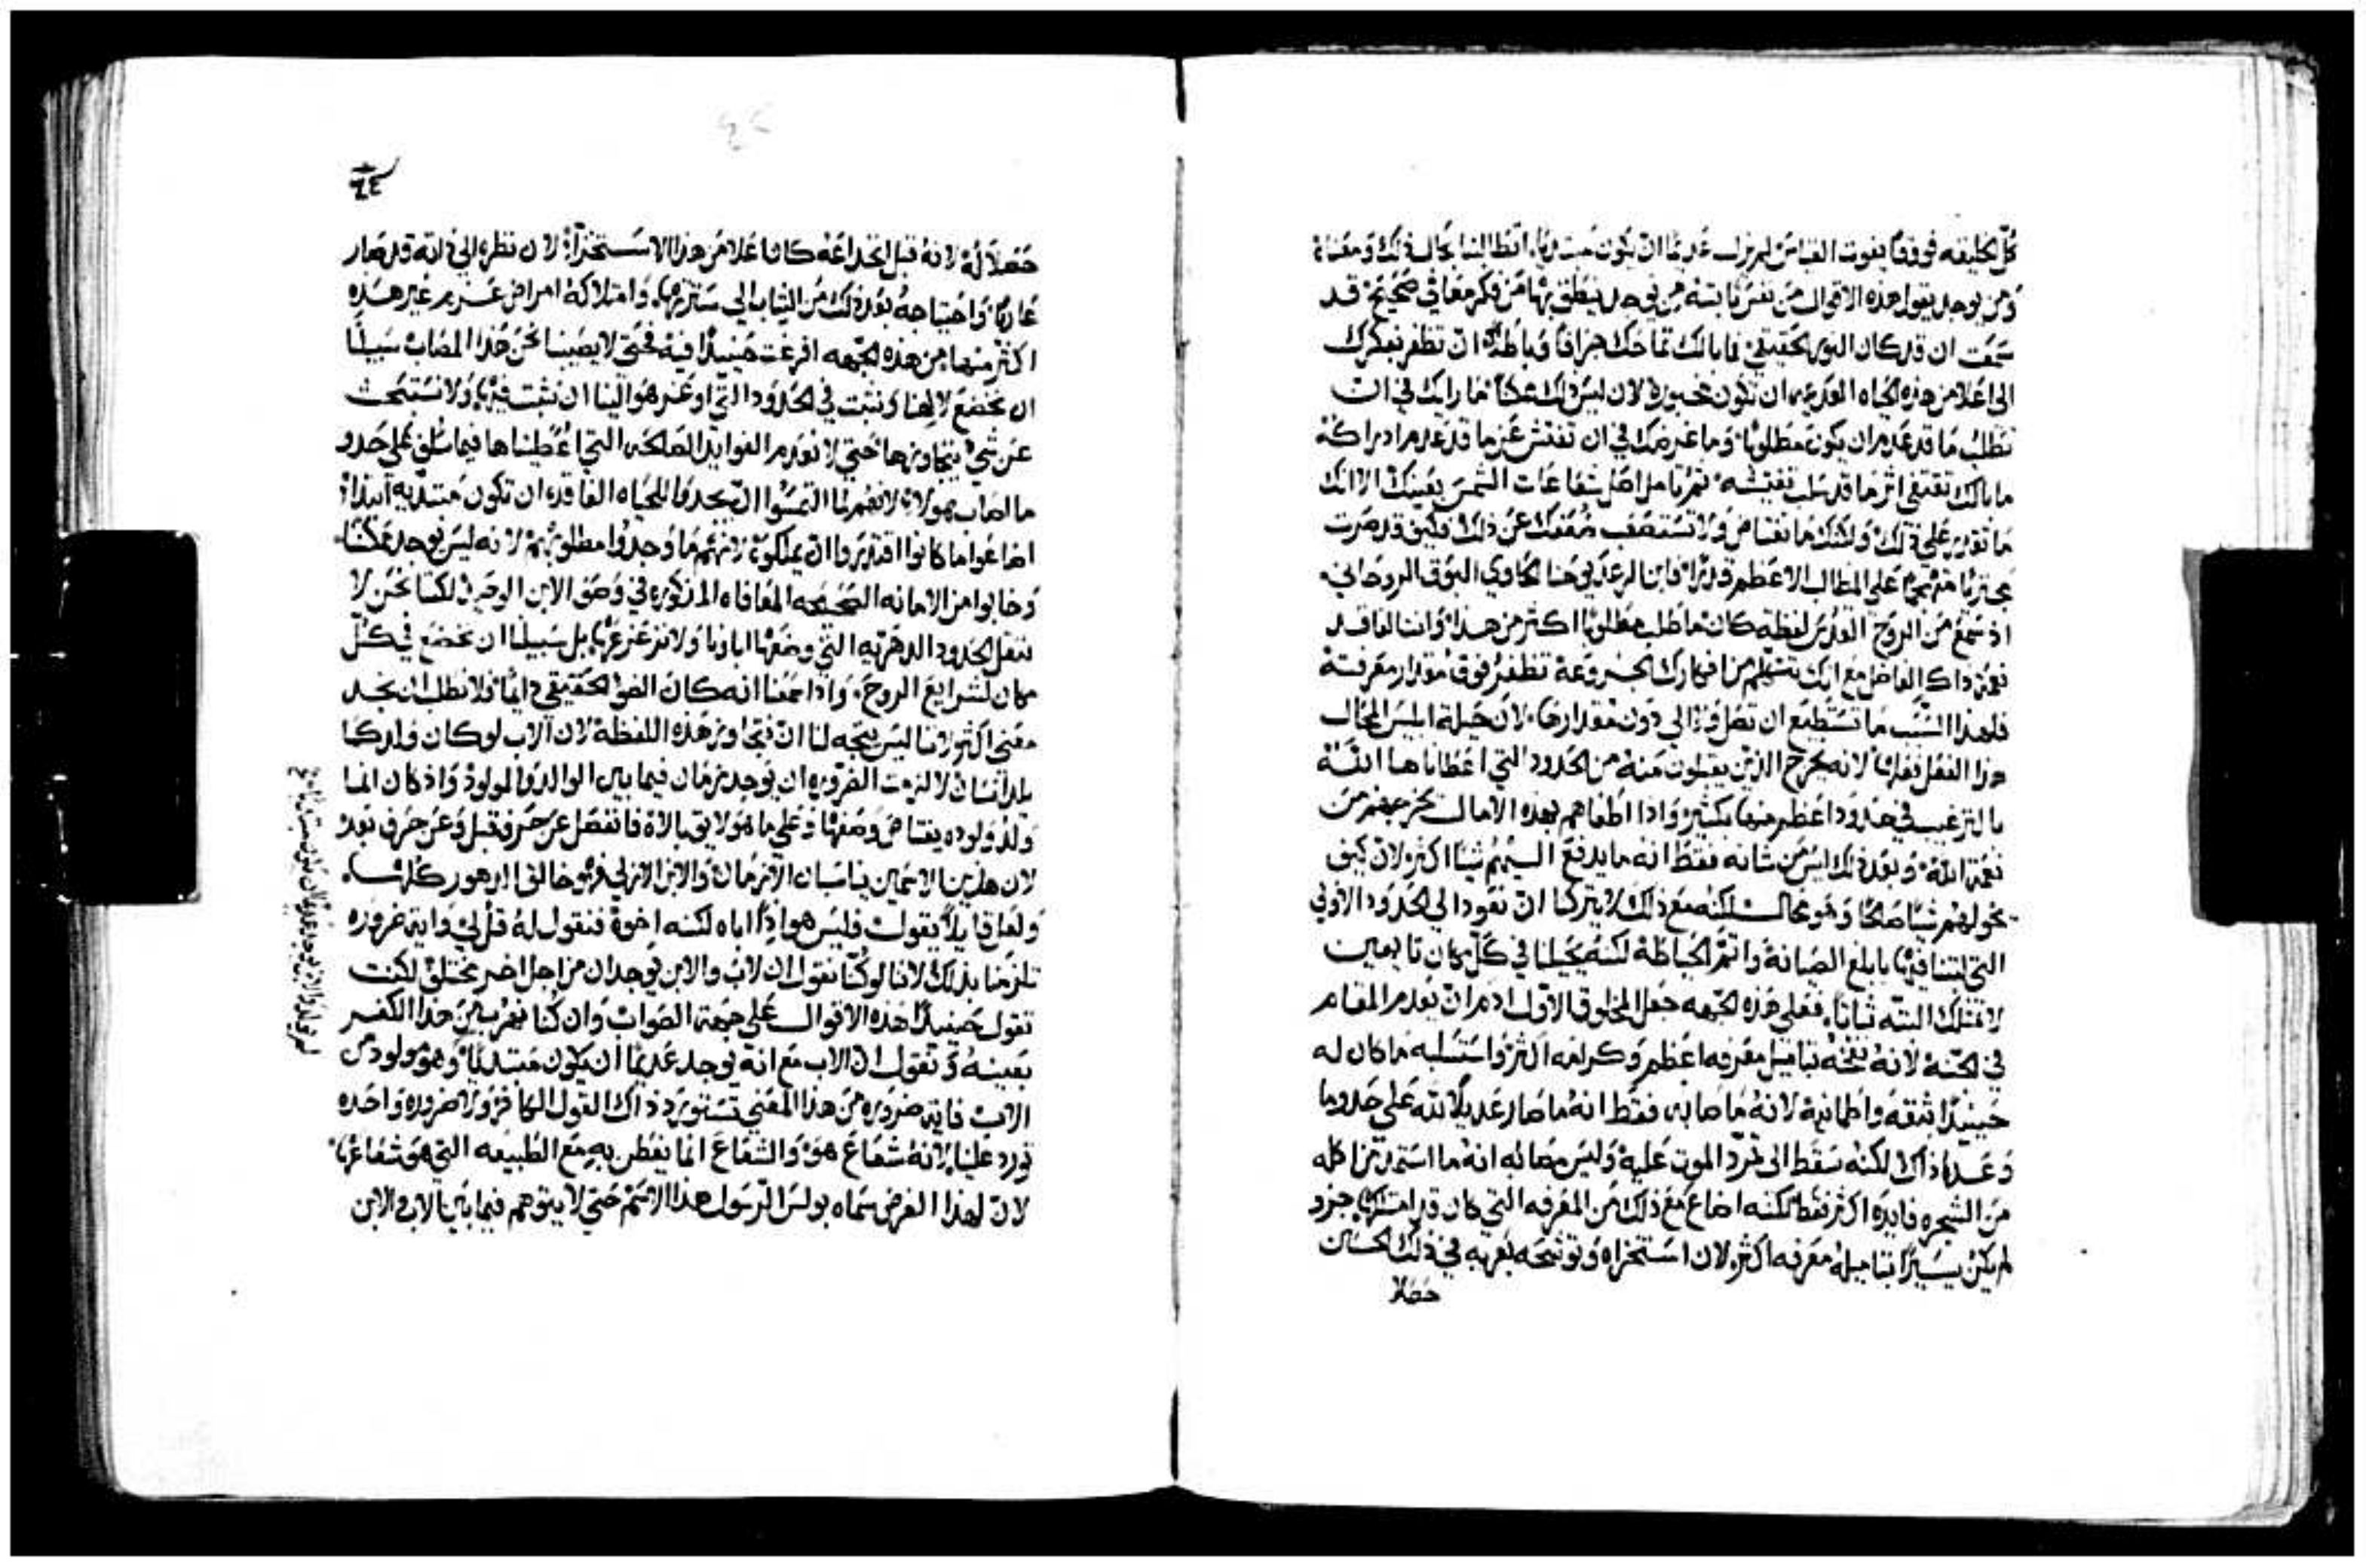 كل الخليقه فوقفا يفوت القياس لم يزل عديما ان يكون مبتديا، اتطالبنا بحال ذلك ومعناه
ومن يوجد يقول هذه الاقوال من نفس ثابته من يوجد ينطق بها من فكر معافي صحيح قد
سمعت ان قد كان النور الحقيقي فما بالك تماحك جزافا وباطلا ان تظفر بفكرك
الى اعلا من هذه الحياه العديمه ان تكون محبوره لان ليس ذلك ممكنا ما رايك في ان
تطلب ما قد عدم ان يكون مطلوبا وما غرضك في ان تفتش عن ما قد عدم ادراكه
ما بالك تقتفي اثر ما قد سلب تفتيشه ثم تامل اصل شعاعات الشمس بعينك الا انك
ما تقدر علي ذلك ولكنك ما تغتاض ولا تستصعب ضعفك عن ذلك فكيف قد صرت
على المطالب الاعظم قدرا فابن الرعد يوحنا الحاوي البوق الروحاني
اذ سمع من الروح القدس لفظه كان ما طلب مطلوبا اكثر من هذا وانت الفاقد
نعمة ذاك الفاضل مع انك تتكلم من افكارك الجزوعه تظفر فوق مقدار معرفته
فلهذا السبب ما تستطيع ان تصل ولا الي دون مقدارها لان حيلة ابليس المحال
هذا الفعل فعلها لانه يخرج الذين يقبلون منه من الحدود التي اعطاناها الله
بالترغيب في حدود اعظم منها بكثير واذا اطغاهم بهذه الامال يخرجهم من
نعمة الله وبعد ذلك ليس من شانه فقط انه ما يدفع اليهم شيا اكثر لان كيف
يخولهم شيا صالحا وهو محال لكنه مع ذلك لا يتركنا ان نعود الي الحدود الاولي
التي لبثنا فيها بابلغ الصيانة واتم الحياطه لكنه يحيلنا في كل مكان تايهين
لا نمتلك البته ثباتا، فعلي هذه الجهه جعل المخلوق الاول ادم ان يعدم المقام
في الجنه لانه نفخه بتاميل معرفه اعظم وكرامه اكثر واستسلبه ما كان له
حينيذا بثقه واطمانيه لانه ما صابه فقط انه ما صار عديلا لله على حد وما
وعده ذاك لكنه سقط الى تمرد الموت عليه وليس مصابه انه ما استمد بتزاكله
من الشجره فايده اكثر فقط لكنه اضاع مع ذلك من المعرفه التي كان قد امتلكها جزو
لم يكن يسيرا بتاميله معرفه اكثر لان استخزاه وتوشحه بعريه في ذلك الحين
حصلا
٦٤
حصلا له لانه قبل انخداعه كان اعلا من هذا الاستخزا لان نظره الي ذاته قد صار
عاريا واحتياجه بعد ذلك من الثياب الي سترتها وامتلاكه امراض عزيم غير هذه
اكثر منها من هذه الجهه افرعت حينيذا فيه فحتى لا يصيبنا نحن هذا المصاب سبيلنا
ان نخضع لالهنا ونثبت في الحدود التي اوعز هو الينا ان نثبت فيها ولا نستبحث
عن شي يتجاوزها حتي لا نعدم الفوايد الصالحه التي اعطيناها فيما سلف
ما اصاب هولاء لانهم لما التمسوا ان يجدوا للحياه الفاقده ان تكون مبتديه ابتداء
اضاعوا ما كانوا اقتدروا ان يملكوه لانهم ما وجدوا مطلوبهم لانه ليس يوجد ممكنا
وخابوا من الامانه الصحيحه المعافاه المذكوره في وصف الابن الوحيد لكننا نحن لا
ننقل الحدود الدهريه التي وضعها اباونا ولا نزعزعها بل سبيلنا ان نخضع في كل
مكان لشرايع الروح واذا سمعنا انه كان الضوء الحقيقي دايما فلا نطلب ان نجد
معني اكثر لاننا ليس يتجه لنا ان نتجاوز هذه اللفظة لان الاب لو كان والدا كما
يلد انسان لا لزمت الضروره ان يوجد زمان فيما بين الوالد والمولود واذ كان انما
ولد ولوده يغتاض وصفها وعلي ما هو لايق بالاه فانفصل عن حرف قبل وعن حرف بعد
لان هذين الاسمين يناسبان الازمان والابن الازلي فهو خالق الدهور كلها.
ولعل قايلا يقول فليس هو اذا اباه لكنه اخوه فنقول له قل لي وايه ضروره
تلزمنا بذلك لاننا لو كنا نقول ان الاب والابن يوجدان من اجل اخر مختلف لكنت
تقول حينيذا هذه الاقوال على جهة الصواب وان كنا نهرب من هذا الكفر
بعينه ونقول ان الاب مع انه يوجد عديما ان يكون مبتديا وهو مولود من
الاب فايه ضروره من هذا المعني تستورد ذاك القول الكافر ولا ضروره واحده
تورد علينا لانه شعاع هو والشعاع انما يفطن به مع الطبيعه التي هو شعاعها
لان لهذا الغرض سماه بولس الرسول هذا الاسم حتي لا يتوهم فيما بين الاب والابن